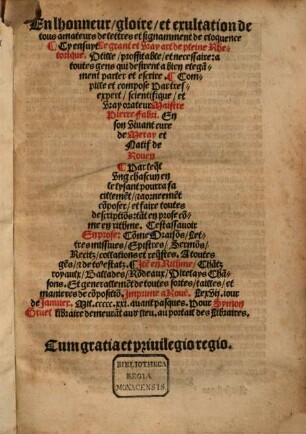 En lhonneur/gloire/et exultation de
tous amateurs de lettres et signamment de eloquence
¶ Cy ensuyt Le grant et vray art de pleine Rhe
torique. Utille/proffitable/et necessaire: a
toutes gens qui desirent a bien elegã-
ment parler et escrire. ¶ Com-
pille et compose Par tres
expert/scientifique/et
vray orateur Maistre
Pierre Fabri. En
son Vivant cure
de Meray et
Natif de
Rouen
¶ Par leq̃l
ung chascun en
le lysant pourra fa
cillemẽt/et aorneemẽt
cõposer/et faire toutes
descriptiõs: tãt en prose cõ-
me en rithme. Cestassavoir
En prose: Cõme Oraisõs/Let-
tres missives/Epistres/Sermõs/
Recitz/collations et req̃stes. A toutes
gẽs/et de to⁹ estatz. Itẽ en Rithme/Chãtz
royaulx/Ballades/Rõdeaux/Virelays Chã-
sons. Et generallemẽt de toutes sortes/tailles/et
manieres de cõpositiõ. Imprime a Rouẽ. Le xvii. iour
de janvier. Mil. ccccc. xxi. avant pasques. Pour Symon
Gruel libraire demeurãt audt̃ lieu, au portail des libraires.
Cum gratia et privilegio regio.
BIBLIOTHECA
REGIA
MONACENSIS.